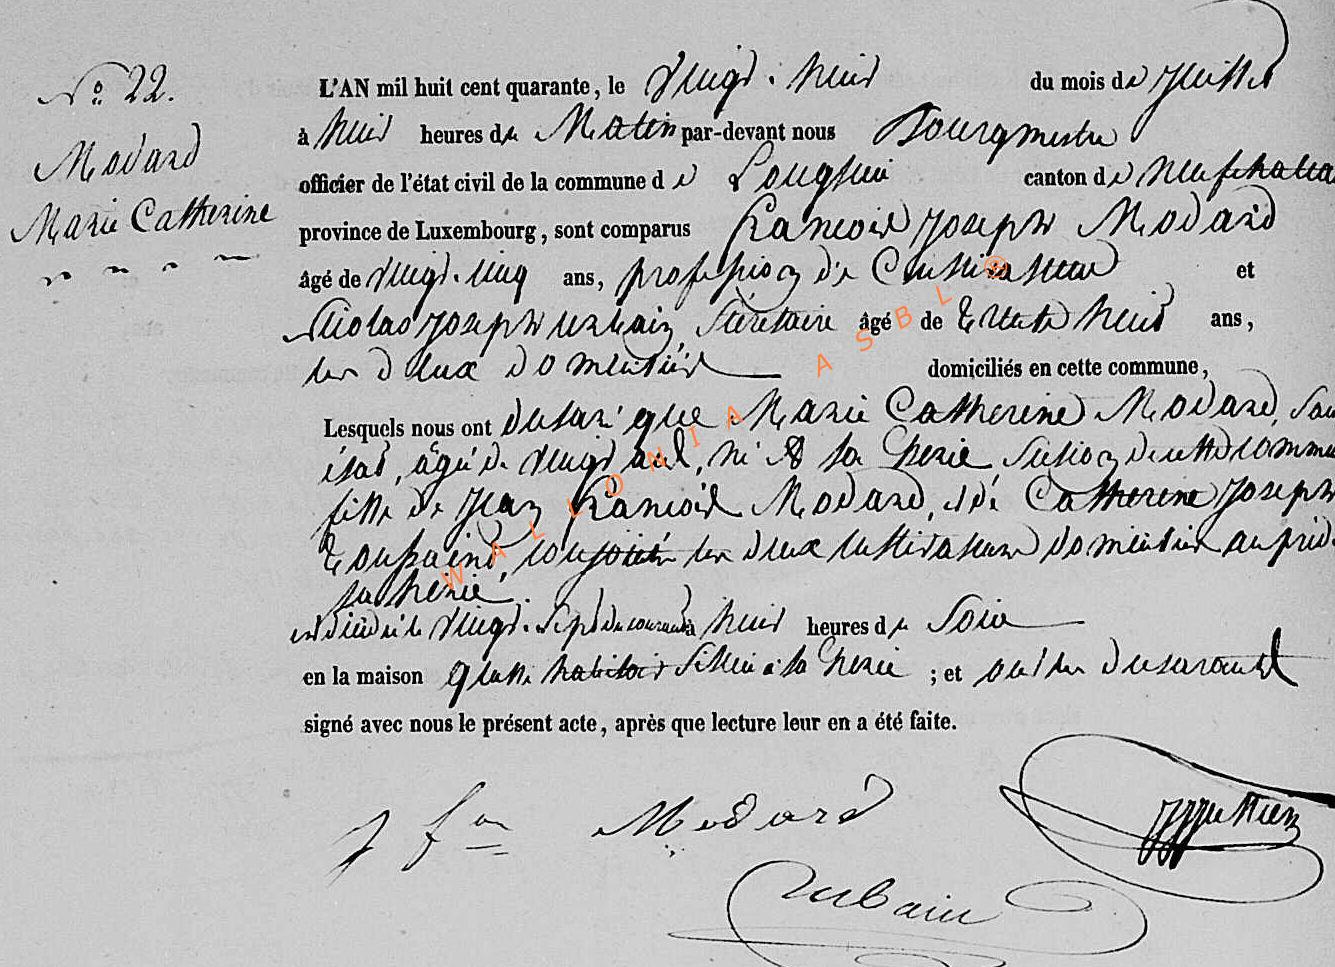 No 22.
Modard
Marie Catherine
L'AN mil huit cent quarante, le vingt-huit du mois de juillet
à huit heures du Matin par-devant nous Bourgmestre
officier de l'état civil de la commune de Longlier canton de Neufchatea
province de Luxembourg, sont comparus François Joseph Modard
âgé de vingt-cinq ans, profession de Cultivateur et
Nicolas Joseph urbain, Sécretaire âgé de trente huit ans,
les deux domicilié domiciliés en cette commune,
Lesquels nous ont déclaré que Marie Catherine Modard, San
état, agée de vingt ans, né à la Cherie Section de cette commu
fille de Jean François Modard, et de Catherine Joseph
Toussaint, les deux cultivateurs domiciliés
la Cherie.
est décédée le vingt-Sept du courant à huit heures du Soir
en la maison quelle habitait à la Cherie ; et ont les déclarants
signé avec nous le présent acte, après que lecture leur en a été faite.
Modard
urbain
WALLONIA ASBL ©